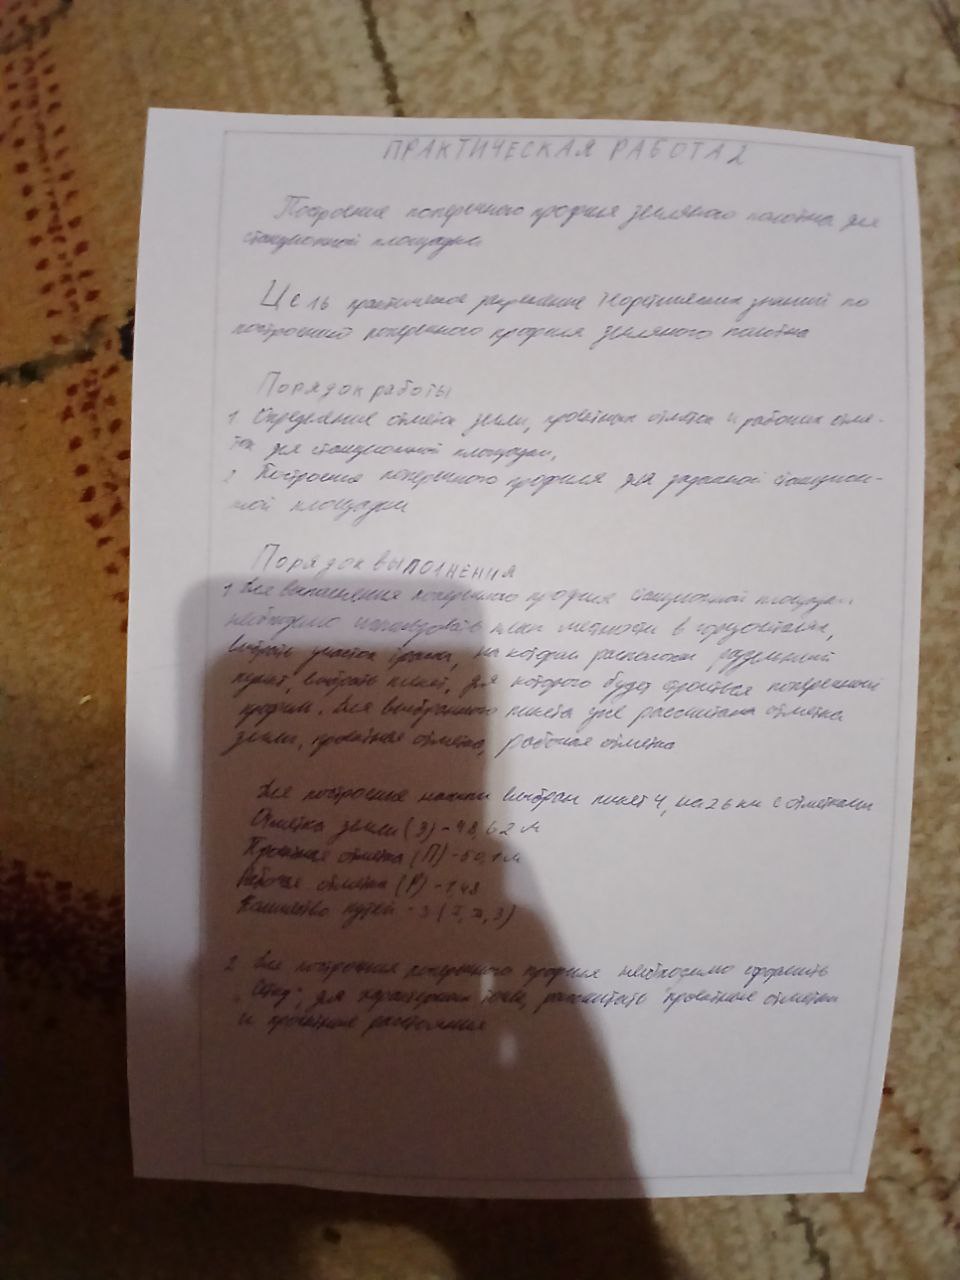 ПРАКТИЧЕСКАЯ РАБОТА 2
Построение поперечного профиля земляного полотна для
станционной площадки
Цель практическое закрепление теоретических знаний по
построению поперечного профиля земляного полотна
Порядок работы
1. Определение отметок земли, проектных отметок и рабочих отме-
ток для станционной площадки,
2 Построение поперечного профиля для заданной станцион-
ной площадки
Порядок выполнения
1 Для выполнения поперечного профиля станционной площадки
необходимо использовать план местности в горизонталях,
выбрать участок трассы, на котором расположен раздельный
пункт, выбрать пикет, для которого будет строиться поперечный
профиль. Для выбранного пикета уже рассчитана отметка
земли, проектная отметка, рабочая отметка
Для построения насыпи выбран пикет 4, на 26 км с отметками
Отметка земли (З) - 48,62 м
Проектная отметка (П) - 50,1 м
Рабочая отметка (Р) - 1,48
Количество путей - 3 (I, II, 3)
2 Для построения поперечного профиля необходимо оформить
для характерных точек, рассчитать проектные отметки
и проектные расстояния